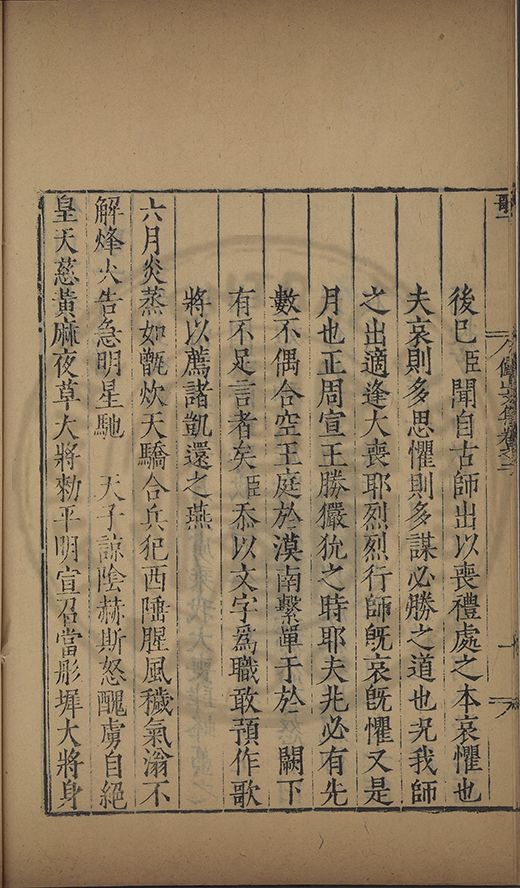 後已臣聞自古師出以喪禮處之本哀懼也
夫哀則多思懼則多謀必勝之道也況我師
之出適逢大喪耶烈烈行師旣哀旣懼又是
月也正周宣王勝玁狁之時耶夫兆必有先
數不偶合空王庭於漠南繫單于於　闕下
有不足言者矣臣忝以文字爲職敢預作歌
將以薦諸凱還之燕
六月炎蒸如甑炊天驕合兵犯西陲腥風穢氣滃不
解烽火告急明星馳　天子諒陰赫斯怒醜虜自絕
皇天慈黃麻夜草大將勑平明宣召當彤墀大將身